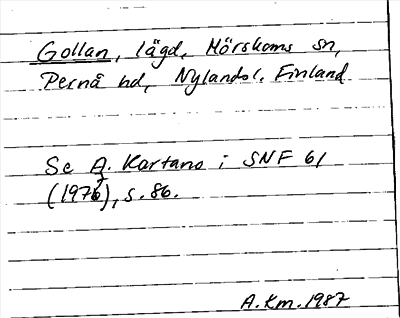 Gollan, lägd, Mörskoms sn,
Pernå hd, Nylands l. Finland
Se A. Kartano i SNF 61
(1976), s. 86.
A.Km.1987